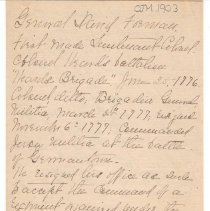 COM.1903
General David Forman
First made Lieutenant Colonel
Colonel Heards battalion
"Heards Brigade" June 20, 1776
Colonel ditto, Brigadier General
Militia March 5th 1777, resigned
November 6th 1777, Commanded
Jersey militia at the battle
of Germantown.
He resigned his office as
Except the Command of a
regiment required under the